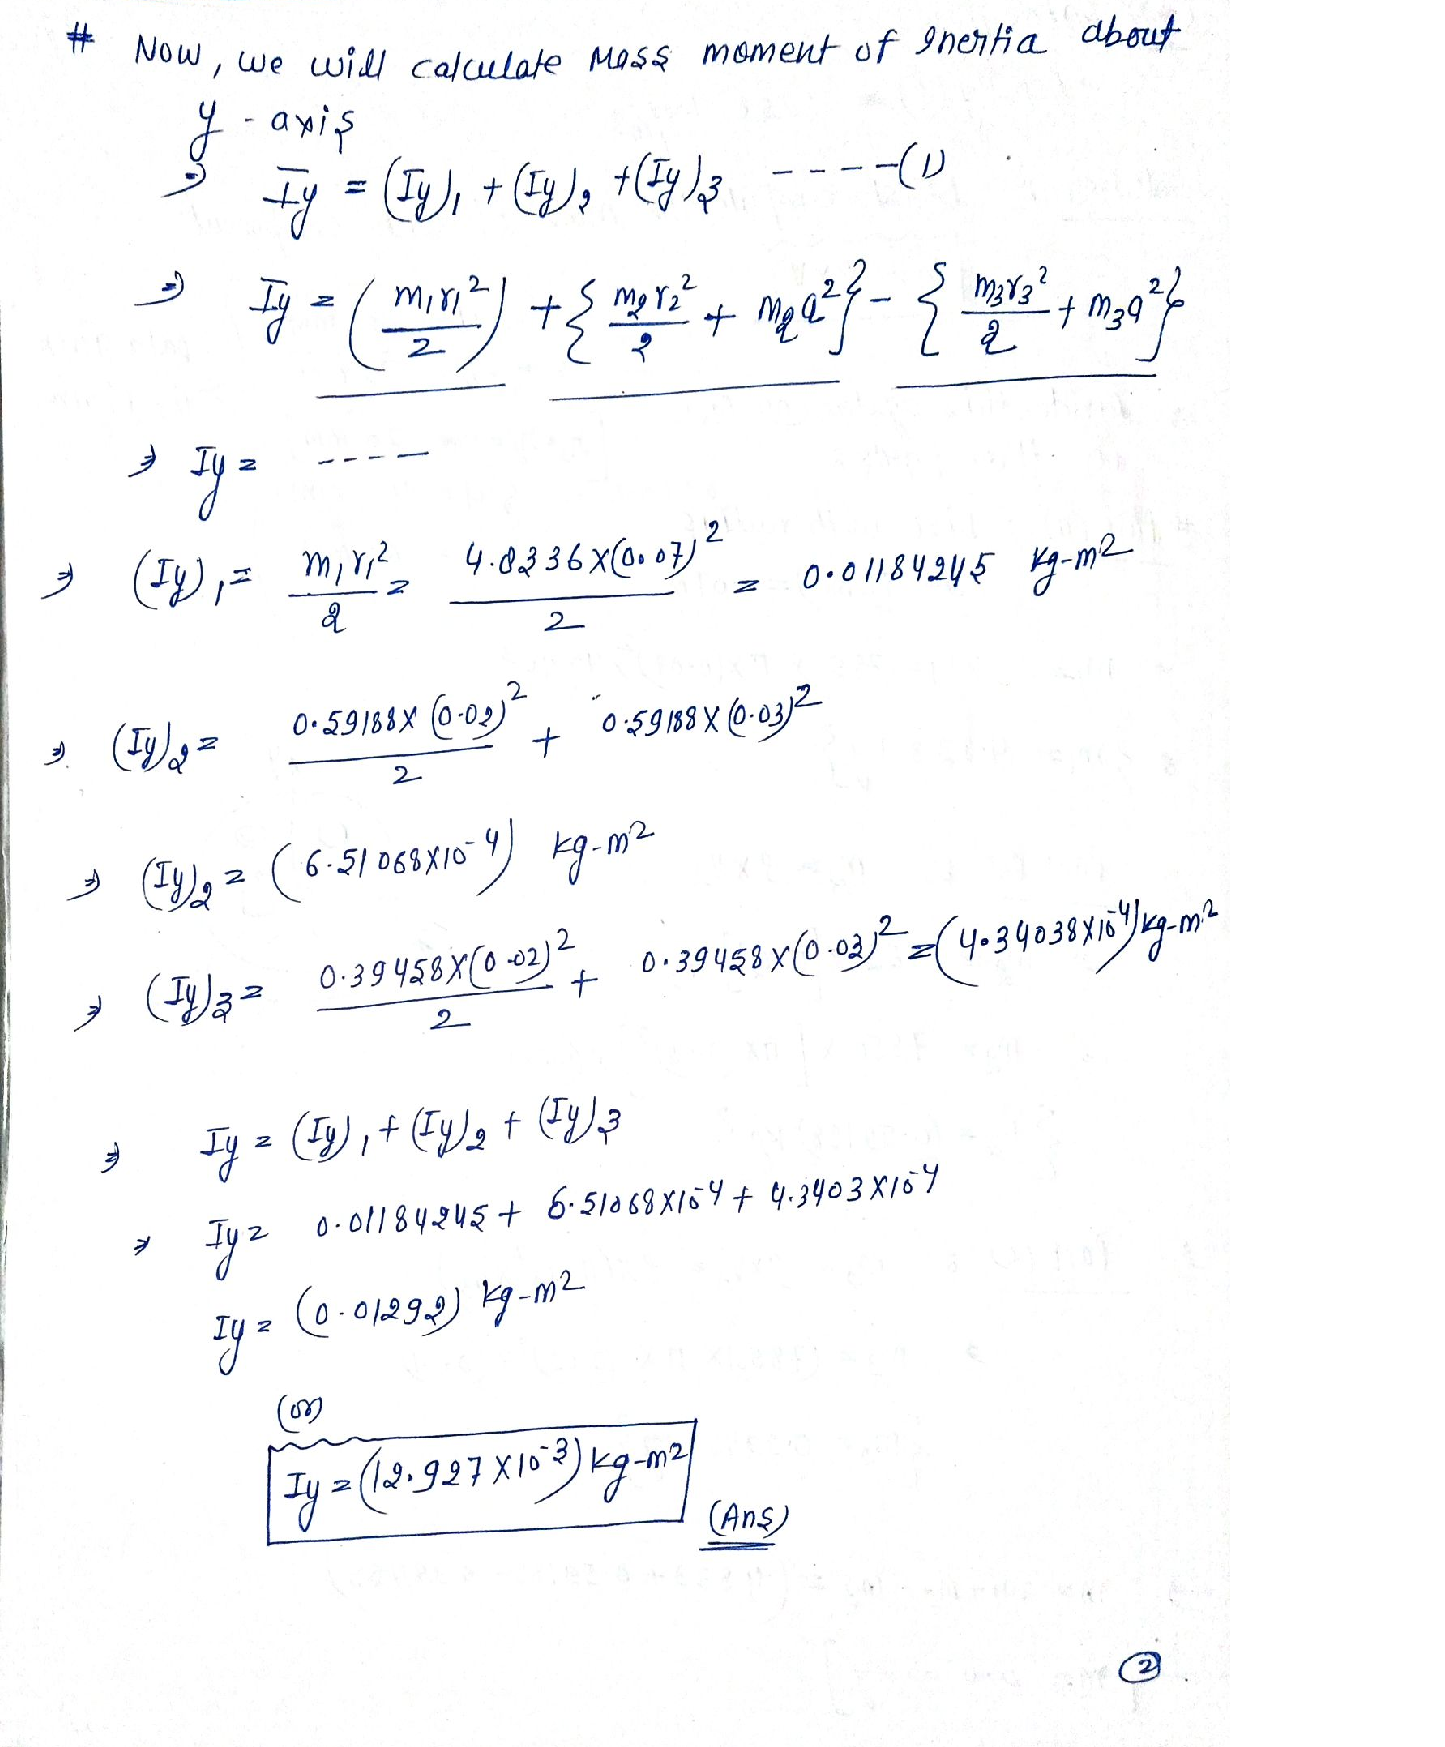 # Now, we will calculate Mass moment of Inertia about
y-axis
⇒ Iy = (Iy)₁ + (Iy)₂ + (Iy)₃ ----(1)
⇒ Iy = (m₁r₁²/2) + {m₂r₂²/2 + m₂a²} - {m₃r₃²/2 + m₃a²}
⇒ Iy = ----
⇒ (Iy)₁ = m₁r₁²/2 = 4.8336×(0.07)²/2 = 0.01184245 kg-m²
⇒ (Iy)₂ = 0.59188×(0.02)²/2 + 0.59188×(0.03)²
⇒ (Iy)₂ = (6.51068×10⁻⁴) kg-m²
⇒ (Iy)₃ = 0.39458×(0.02)²/2 + 0.39458×(0.03)² = (4.34038×10⁻⁴) kg-m²
⇒ Iy = (Iy)₁ + (Iy)₂ + (Iy)₃
⇒ Iy = 0.01184245 + 6.51068×10⁻⁴ + 4.3403×10⁻⁴
Iy = (0.01292) kg-m²
(or)
Iy = (12.927×10⁻³) kg-m²
(Ans)
2